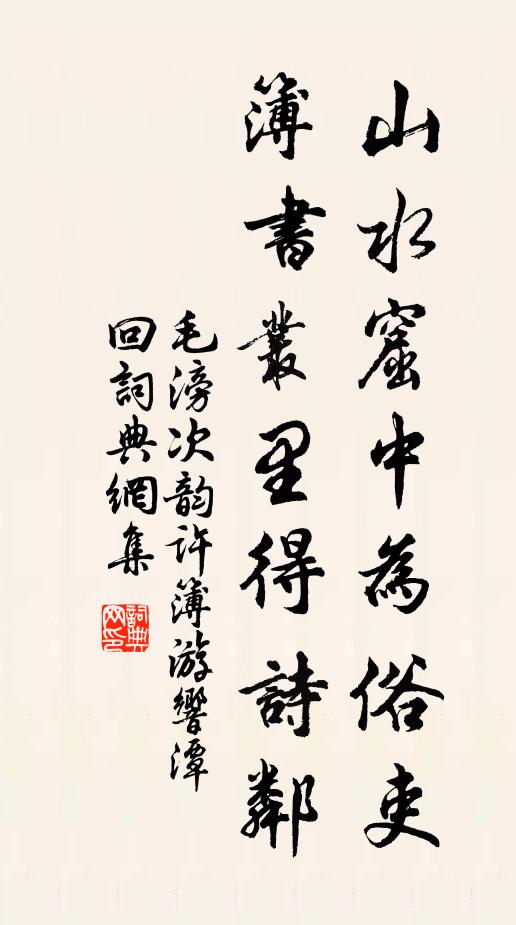 山水窟中為俗吏
簿書叢里得詩鄰
毛滂次韵許簿游響潭
回詞典網集
詞典
网印